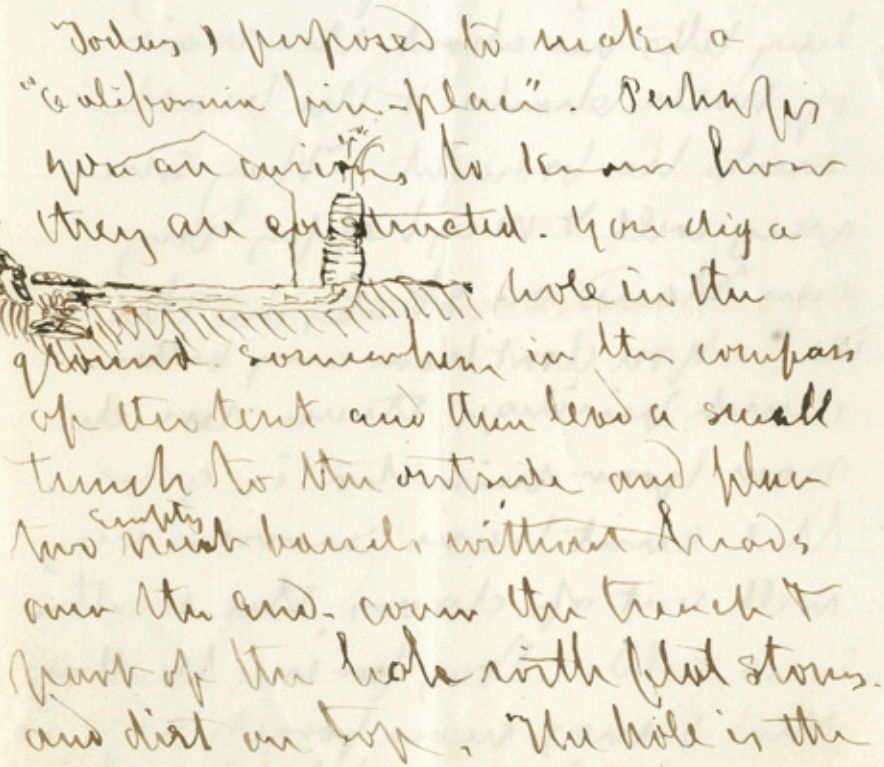 Today I purposed to make a
"California fire-place". Perhaps
you are curious to know how
they are constructed. You dig a
hole in the
ground somewhere in the compass
of the tent and then lead a small
trench to the outside and place
two empty meat barrels without heads
over the end. cover the trench &
part of the hole with flat stones
and dirt on top. The hole is the